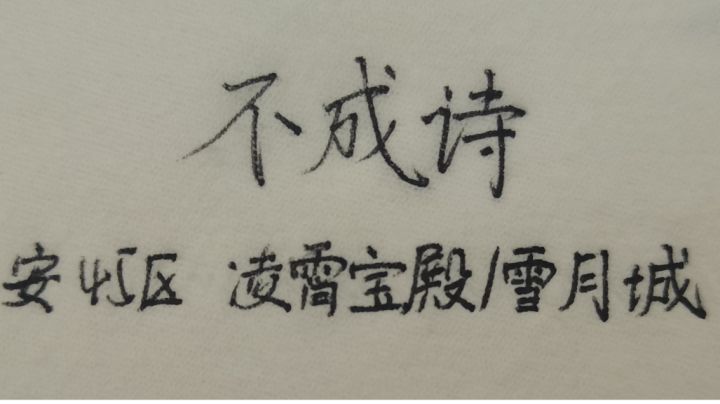 不成诗
安45区 凌霄宝殿/雪月城